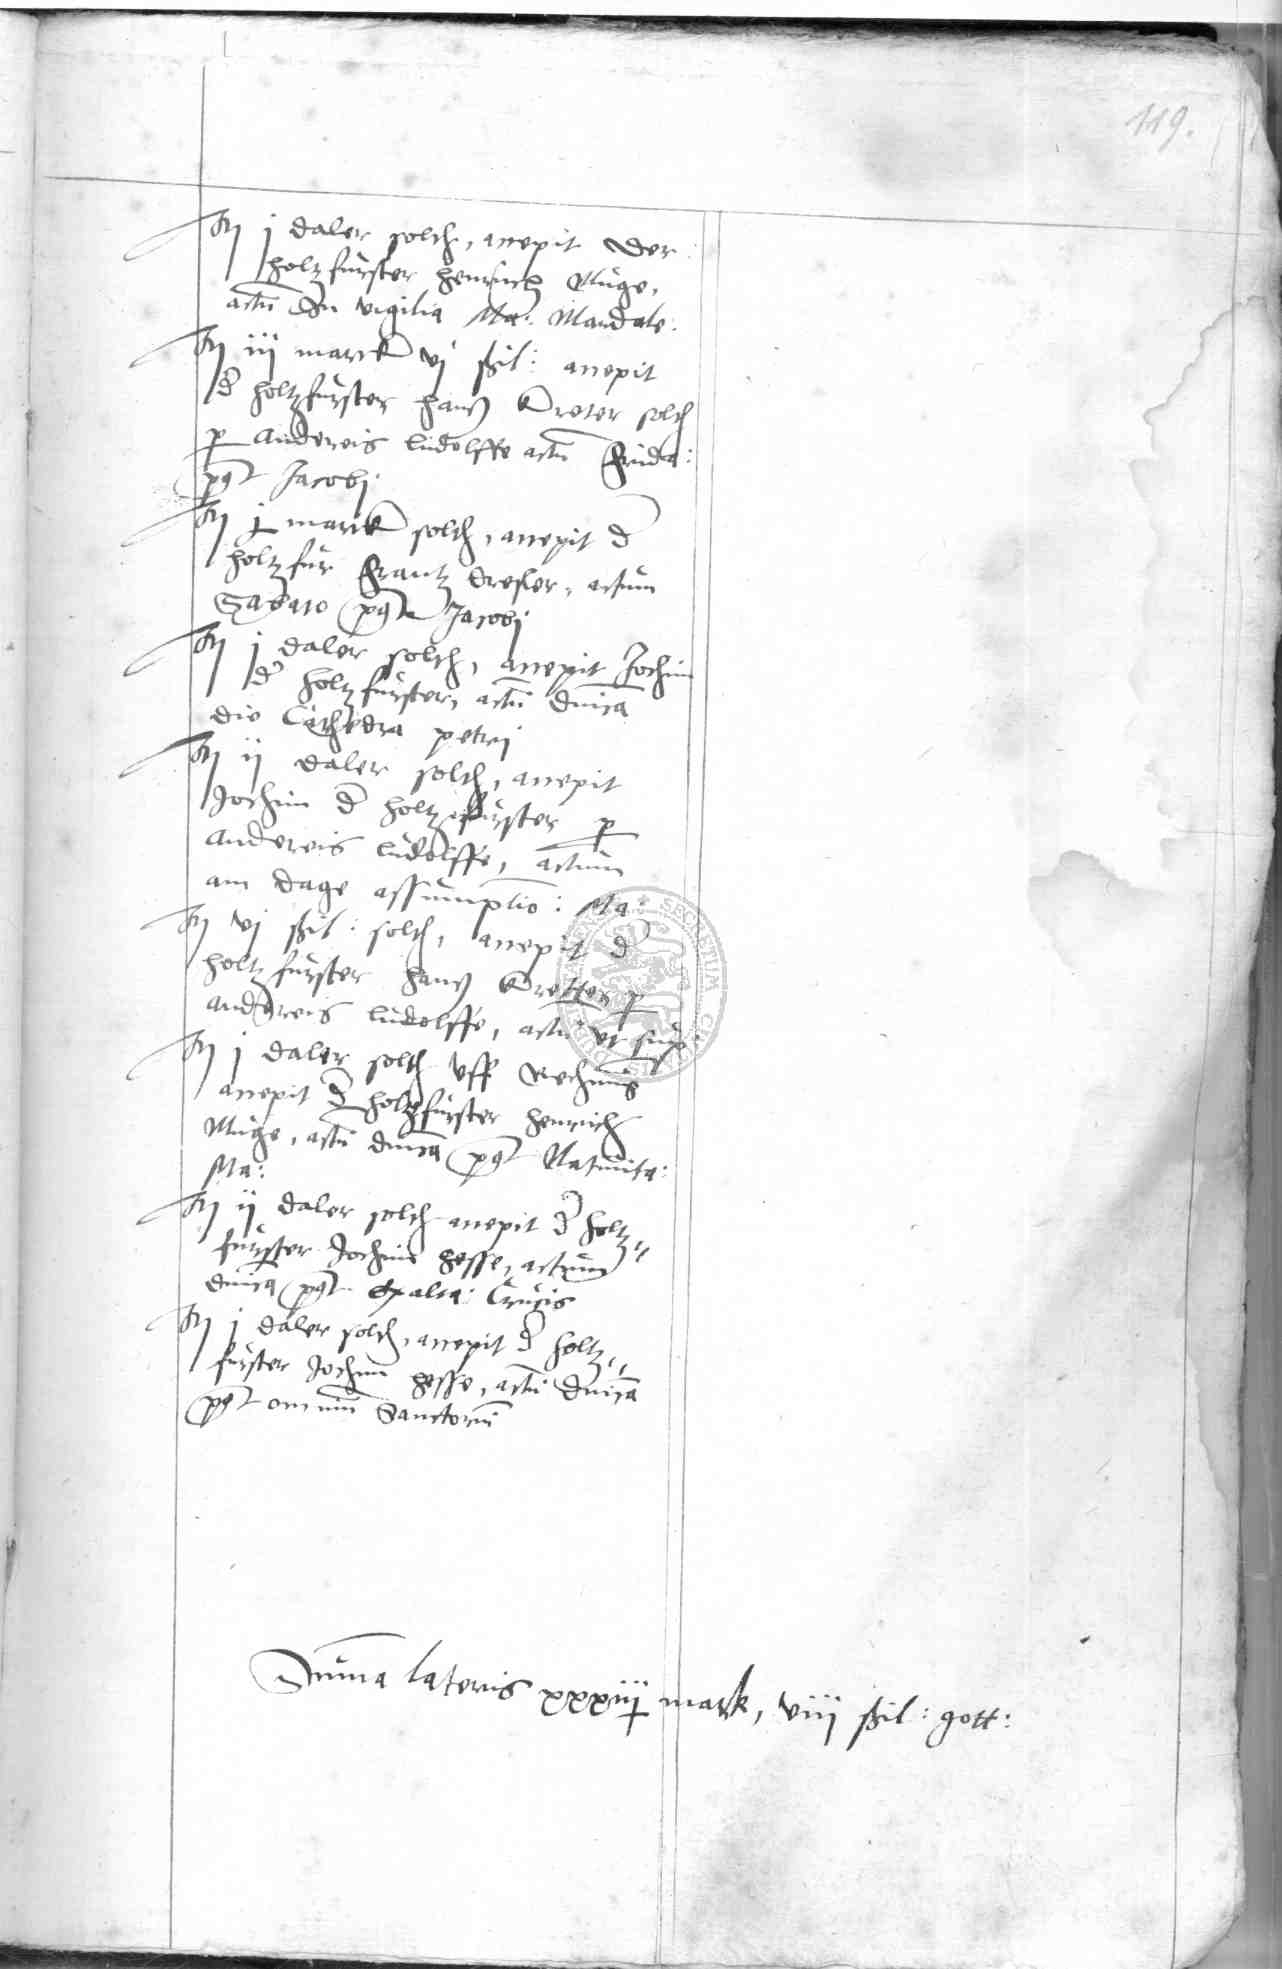 119.
It j daler solch, accepit der
holtzfurster Henrich Kluge,
actu In vigilia Ma: Mandale:
It iij marck vj ßil: accepit
d holtzfurster Hans Kreter solch
p Andereis Ludolffe actu frida:
post Jacobj
It j marck solch, accepit d
holtzfur Frantz Dreser, actum
Sabato post Jacobj
It j daler solch, accepit Jochim
d holtzfurster, actu dnica
die Cathedra petrj
It ij daler solch, accepit
Jochim d holtzfurster p
Andereis Ludolffe, actum
am dage assumptio: Ma:
It vj ßil: solch, accepit d
holtzfurster Hans Kretter p
Andereis Ludolffe, actu ut sup:
It j daler solch uff Rechnug
accepit d holtzfurster Henrich
Kluge, actu dnica post Natiuita:
Ma:
It ij daler solch accepit d holtz„
furster Jochim Hesse, actum
dnica post Exalta: Crucis
It j daler solch, accepit d holtz„
furster Jochim Hesse, actu dnica
post omniu Sanctoru
Suma lateris xxxiij mark, viij ßil: gott:
SECRETUM